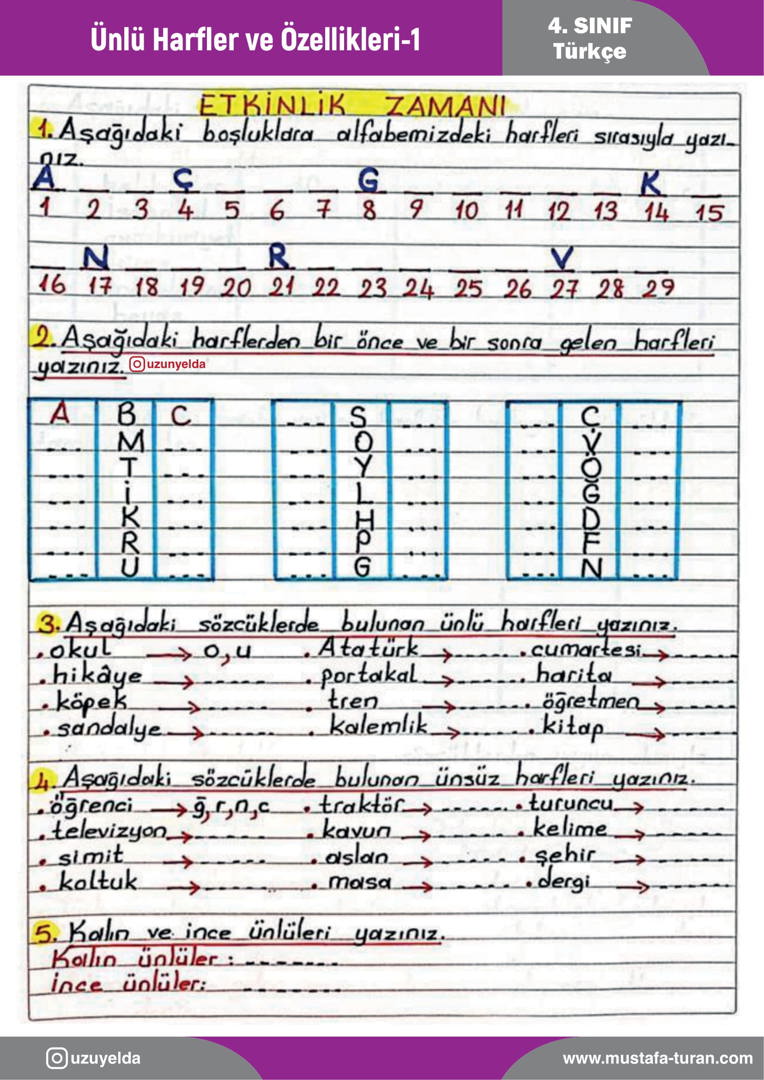 Ünlü Harfler ve Özellikleri-1
4. SINIF
Türkçe
ETKİNLİK ZAMANI
1. Aşağıdaki boşluklara alfabemizdeki harfleri sırasıyla yazı-
nız.
A __ __ Ç __ __ __ G __ __ __ __ __ K __
1 2 3 4 5 6 7 8 9 10 11 12 13 14 15
__ N __ __ __ R __ __ __ __ __ V __ __
16 17 18 19 20 21 22 23 24 25 26 27 28 29
2. Aşağıdaki harflerden bir önce ve bir sonra gelen harfleri
yazınız. uzunyelda
A B C --- S --- --- Ç ---
--- M --- --- O --- --- V ---
--- T --- --- Y --- --- Ö ---
--- İ --- --- L --- --- Ğ ---
--- K --- --- H --- --- D ---
--- R --- --- P --- --- F ---
--- U --- --- G --- --- N ---
3. Aşağıdaki sözcüklerde bulunan ünlü harfleri yazınız.
. okul → o, u . Atatürk → ------ . cumartesi → ------
. hikâye → ------ . portakal → ------ . harita → ------
. köpek → ------ . tren → ------ . öğretmen → ------
. sandalye → ------ . kalemlik → ------ . kitap → ------
4. Aşağıdaki sözcüklerde bulunan ünsüz harfleri yazınız.
. öğrenci → ğ, r, n, c . traktör → ------ . turuncu → ------
. televizyon → ------ . kavun → ------ . kelime → ------
. simit → ------ . aslan → ------ . şehir → ------
. koltuk → ------ . masa → ------ . dergi → ------
5. Kalın ve ince ünlüleri yazınız.
Kalın ünlüler : -------
İnce ünlüler: -------
uzuyelda
www.mustafa-turan.com